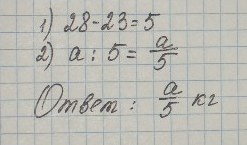 1) 28-23=5
2) a : 5 = a/5
Ответ : a/5 кг